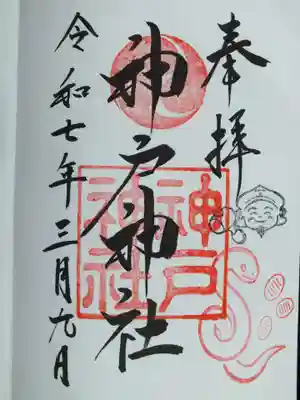 奉拝
神戸神社
神戸神社
令和七年三月九月